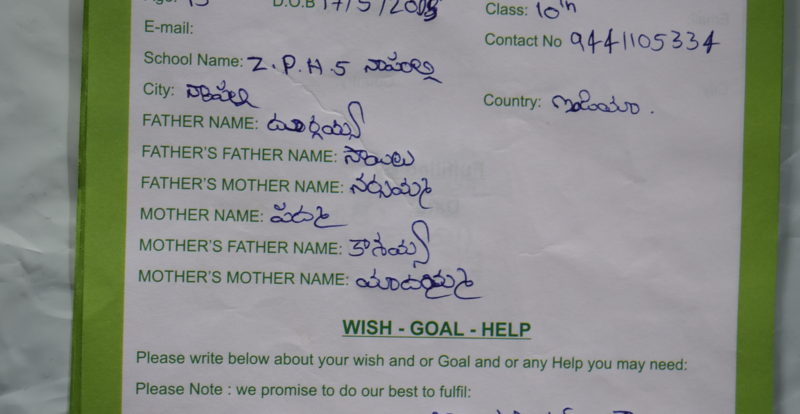 D.O.B 17/5/2008 Class: 10th
E-mail: Contact No 9441105334
School Name: Z.P.H.S
City: Country: ఇండియా.
FATHER NAME: దుర్గయ్య
FATHER'S FATHER NAME: సాయిలు
FATHER'S MOTHER NAME: నర్సమ్మ
MOTHER NAME: పద్మ
MOTHER'S FATHER NAME: కాశయ్య
MOTHER'S MOTHER NAME:
WISH - GOAL - HELP
Please write below about your wish and or Goal and or any Help you may need:
Please Note : we promise to do our best to fulfil: